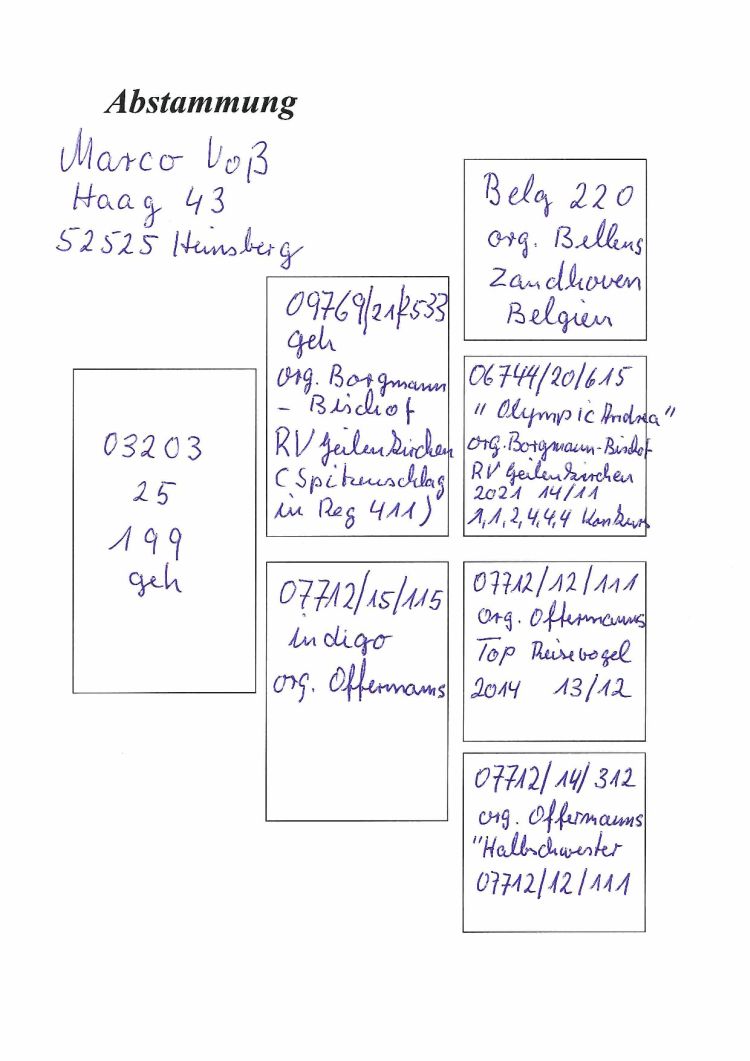 Abstammung
Marco Voß
Haag 43
52525 Heinsberg
03203
25
199
geh
09769/21/2533
geh
org. Borgmann
- Bischof
RV Geilenkirchen
(Spitzenschlag
in Reg 411)
07712/15/115
indigo
org. Offermanns
Belg 220
org. Bellens
Zandhoven
Belgien
06744/20/615
"Olympic Andrea"
org. Borgmann-Bischof
RV Geilenkirchen
2021 14/11
1,1,2,4,4,4 Konkurs
07712/12/111
org. Offermanns
Top Reisevogel
2014 13/12
07712/14/312
org. Offermanns
"Halbschwester
07712/12/111